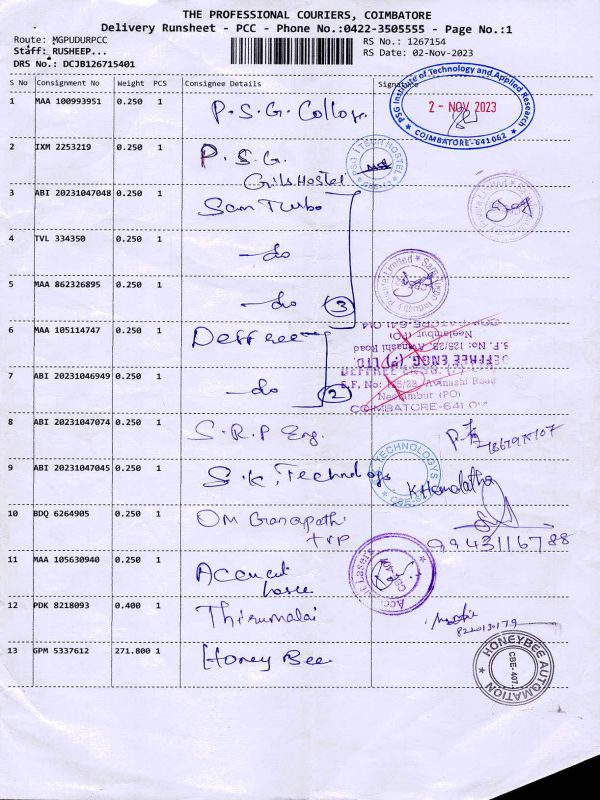 THE PROFESSIONAL COURIERS, COIMBATORE
Delivery Runsheet - PCC - Phone No.:0422-3505555 - Page No.:1
Route: MGPUDURPCC
RS No.: 1267154
Staff: RUSHEEP...
RS Date: 02-Nov-2023
DRS No.: DCJB126715401
S No Consignment No Weight PCS Consignee Details Signature
1 MAA 100993951 0.250 1 P.S.G. College
PSG Institute of Technology and Applied Research
2 - NOV 2023
COIMBATORE-641062
2 IXM 2253219 0.250 1 P.S.G.
Girls Hostel
PSG ITECH HOSTEL
3 ABI 20231047048 0.250 1 Sam Turbo
4 TVL 334350 0.250 1 -do
5 MAA 862326895 0.250 1 -do
3
Sam Turbo Industry Private Limited
6 MAA 105114747 0.250 1 Deffree
7 ABI 20231046949 0.250 1 -do
2
COIMBATORE-641 014
Neelambur (PO)
S.F. No: 125/2B, Avinashi Road
DEFFREE ENGG (P) LTD.
DEFFREE ENGG
S.F. No: 125/2B, Avinashi Road
Neelambur (PO)
COIMBATORE-641 014
8 ABI 20231047074 0.250 1 S.R.P Eng.
9 ABI 20231047045 0.250 1 S.K. Technologs
TECHNOLOGYS
K Hemalatha
10 BDQ 6264905 0.250 1 OM Ganapathi
trp
9943116788
11 MAA 105630940 0.250 1 Accurat
Laser
Accurat Lasers
12 PDK 8218093 0.400 1 Thirumalai
8220130179
13 GPM 5337612 271.800 1 Honey Bee
HONEYBEE AUTOMATION
CBE-407.